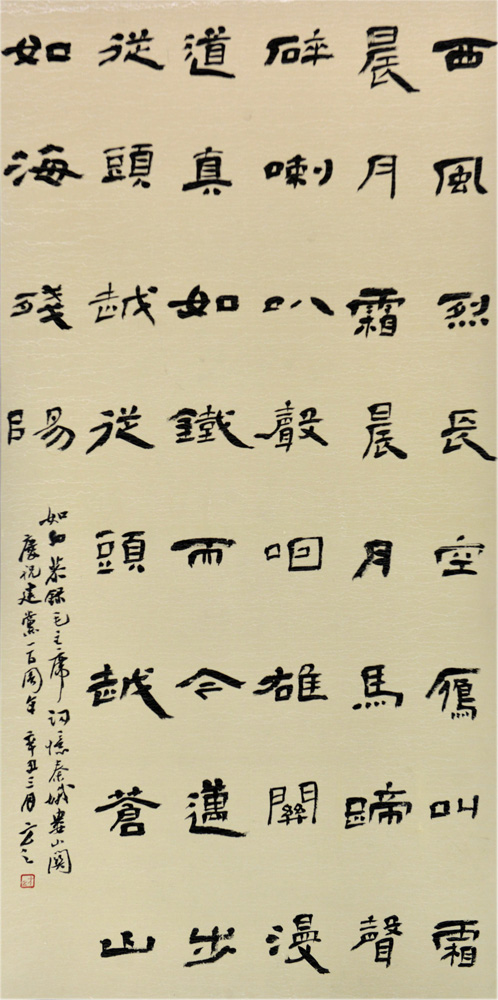 西風烈長空鴈叫霜
晨月霜晨月馬蹄聲
碎喇叭聲咽雄關漫
道真如鐵而今邁步
從頭越從頭越蒼山
如海殘陽
如血恭錄毛主席詞憶秦娥婁山關
慶祝建黨一百周年辛丑三月